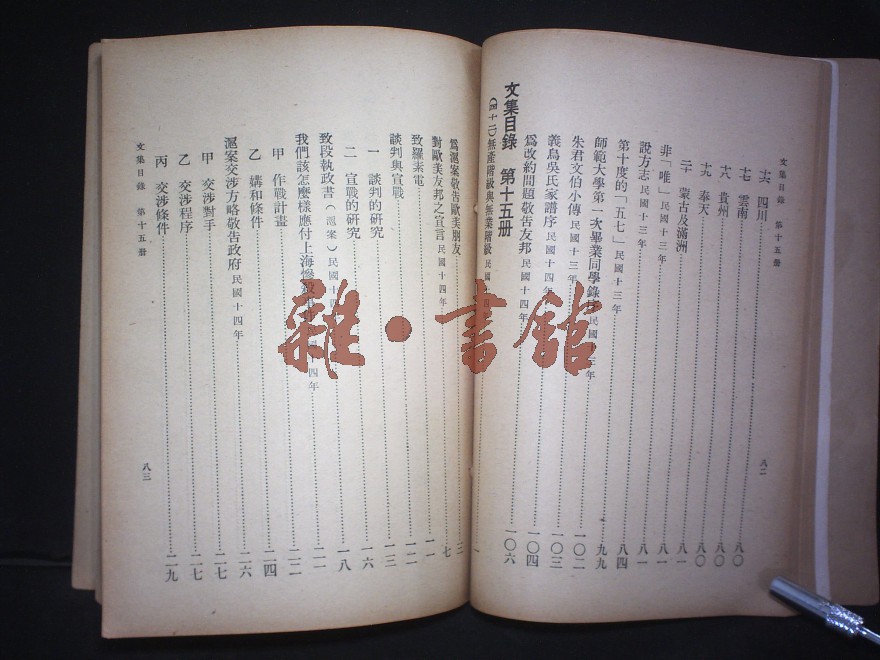 文集目錄 第十五册
十六 四川……八〇
十七 雲南……八〇
十八 貴州……八〇
十九 奉天……八〇
二十 蒙古及滿洲……八一
非「唯」民國十三年……八一
說方志民國十三年……八一
第十度的「五七」民國十三年……八四
師範大學第一次畢業同學錄序民國十三年……九九
朱君文伯小傳民國十三年……一〇二
義烏吳氏家譜序民國十四年……一〇三
爲改約問題敬告友邦民國十四年……一〇四
一〇六
八二
文集目錄 第十五册
(四十二)無產階級與無業階級民國十四年……一
爲滬案敬告歐美朋友……三
對歐美友邦之宣言民國十四年……七
致羅素電……一一
談判與宣戰……一三
一 談判的研究……一六
二 宣戰的研究……一八
致段執政書(滬案)民國十四年……二一
我們該怎麽樣應付上海慘殺 民國十四年……二二
甲 作戰計畫……二四
乙 媾和條件……二六
滬案交涉方略敬告政府民國十四年……二七
甲 交涉對手……二七
乙 交涉程序
丙 交涉條件……二九
文集目錄 第十五册
八三
雜·書館